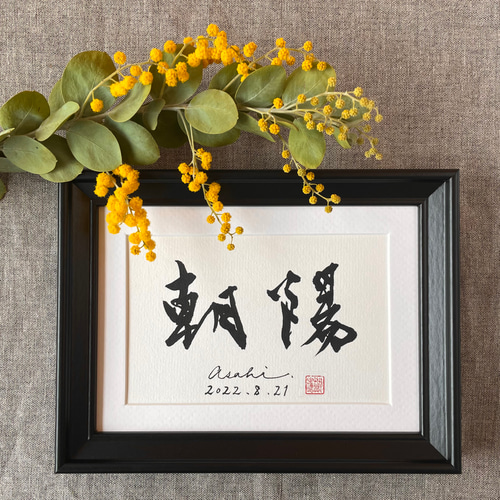 朝陽
asahi.
2022.8.21